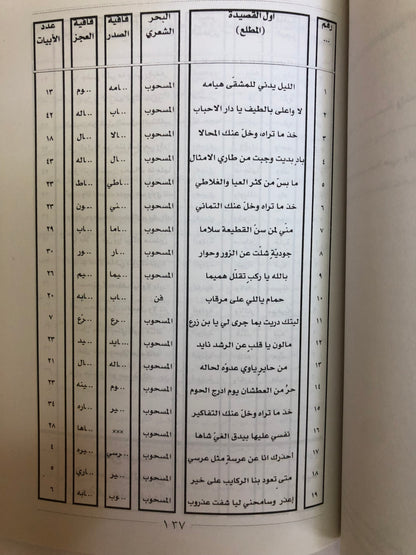 رقم ... | اول القصيدة (المطلع) | البحر الشعري | قافية الصدر | قافية العجز | عدد الأبيات
١ | الليل يدني للمشقّى هيامه | المسحوب | ..امه | ..وم | ١٣
٢ | لا واعلى بالطيف يا دار الاحباب | المسحوب | ..اب | ..اله | ٤٢
٣ | خذ ما تراه، وخل عنك المحالا | المسحوب | ..الا | ..ال | ١٨
٤ | بادٍ بديت وجبت من طاري الامثال | المسحوب | ..ال | ..اله | ٤٣
٥ | ما بسّ من كثر العيا والغلاطي | المسحوب | ..اطي | ..اط | ٢٣
٦ | خذ ما تراه، وخل عنك التماني | المسحوب | ..ني | ..ون | ٢٣
٧ | منّي لمن سنّ القطيعة سلاما | المسحوب | ..اما | ..اب | ٢٩
٨ | جوديّة شلّت عن الزور وحوار | المسحوب | ..ار | ..ور | ٣٠
٩ | بالله يا ركبٍ تقلّل هميما | المسحوب | ..يما | ..يم | ٢٦
١٠ | حمام ياللي على مرقاب | فن | ..اب | ..ابه | ٢٠
١١ | ليتك دريت بما جرى لي يا بن زرع | المسحوب | ..رع | ..رّع | ٧
١٢ | مالون يا قلبٍ عن الرشد نايد | المسحوب | ..ايد | ..يد | ٢٣
١٣ | من حايرٍ ياوي عدوّه لحاله | المسحوب | ..اله | ..ال | ٢١
١٤ | حرٌ من العطشان يوم ادرج الحوم | المسحوب | ..وم | ..ينه | ٣٣
١٥ | خذ ما تراه وخل عنك التفاكير | المسحوب | ..ير | ..اره | ٣٤
١٦ | نفسي عليها بيدق الغيّ شاها | المسحوب | ××× | ..اها | ٢٨
١٧ | أحذرك انا عن عرسةٍ مثل عرسي | المسحوب | ..رسي | ..يره | ٤
١٨ | متى تعود بنا الركايب على خير | المسحوب | ..ير | ..اري | ٥
١٩ | إعذر وسامحني ليا شفت عذروب | المسحوب | ..وب | ..ابه | ٦
١٣٧